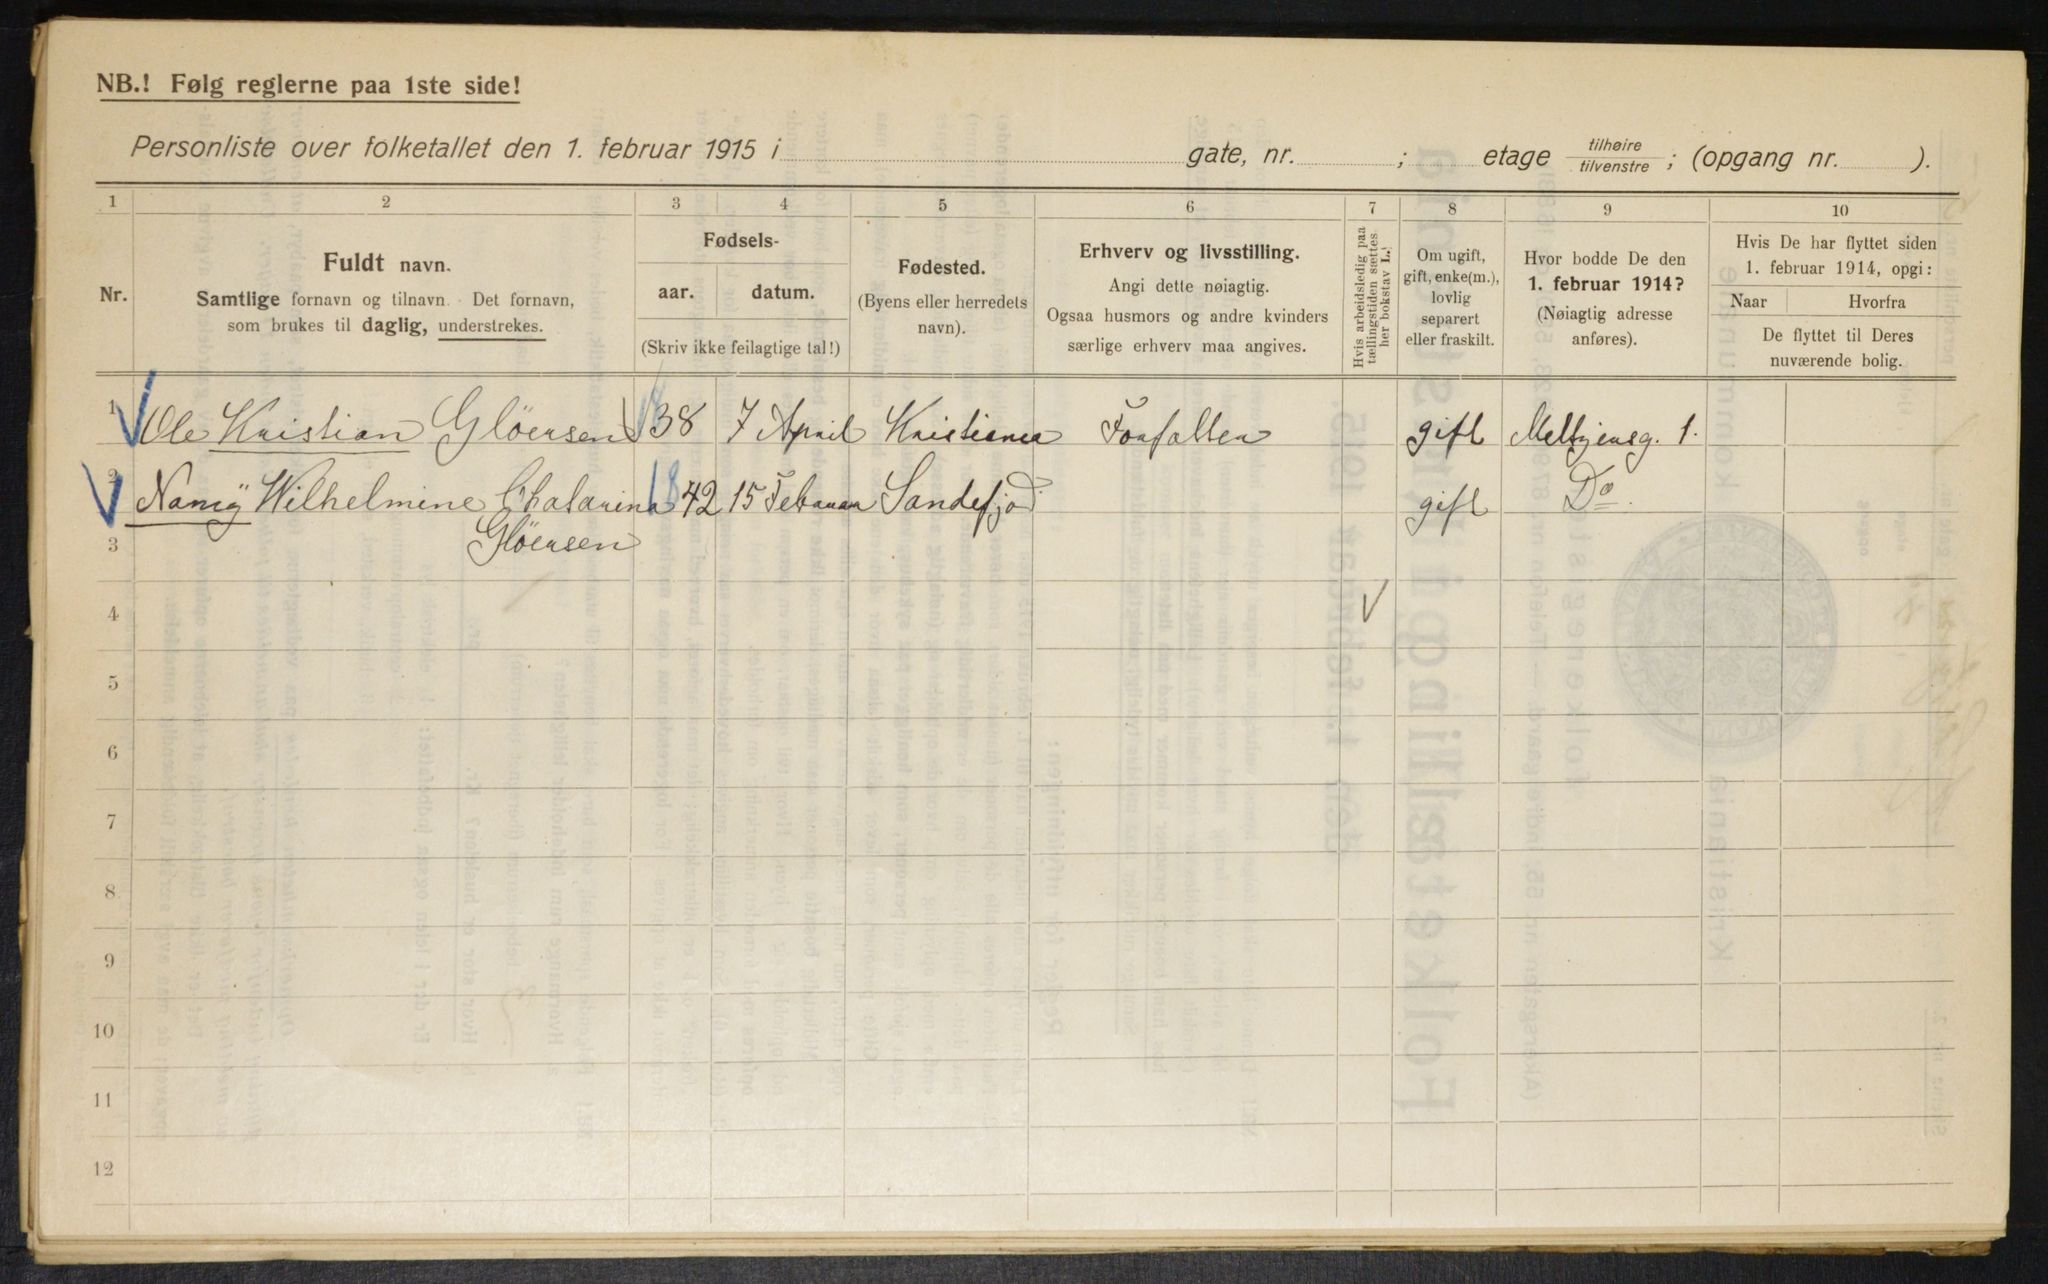 NB.! Følg reglerne paa 1ste side!
Personliste over folketallet den 1. februar 1915 i gate, nr. ; etage tilhøire tilvenstre ; (opgang nr. ).
1 2 3 4 5 6 7 8 9 10
Nr.
Fuldt navn.
Samtlige fornavn og tilnavn. Det fornavn,
som brukes til daglig, understrekes.
Fødsels-
aar. datum.
(Skriv ikke feilagtige tal!)
Fødested.
(Byens eller herredets
navn).
Erhverv og livsstilling.
Angi dette nøiagtig.
Ogsaa husmors og andre kvinders
særlige erhverv maa angives.
Hvis arbeidsledig paa
tællingstiden sættes
her bokstav L.
Om ugift,
gift, enke(m.),
lovlig
separert
eller fraskilt.
Hvor bodde De den
1. februar 1914?
(Nøiagtig adresse
anføres).
Hvis De har flyttet siden
1. februar 1914, opgi:
Naar Hvorfra
De flyttet til Deres
nuværende bolig.
1 Ole Kristian Glöersen 1838 7 April Kristiania Forfatter gift Meltzersg. 1.
2 Nancÿ Wilhelmine Chatarina 1842 15 Februar Sandefjord gift Do.
3 Glöersen
4
5
6
7
8
9
10
11
12